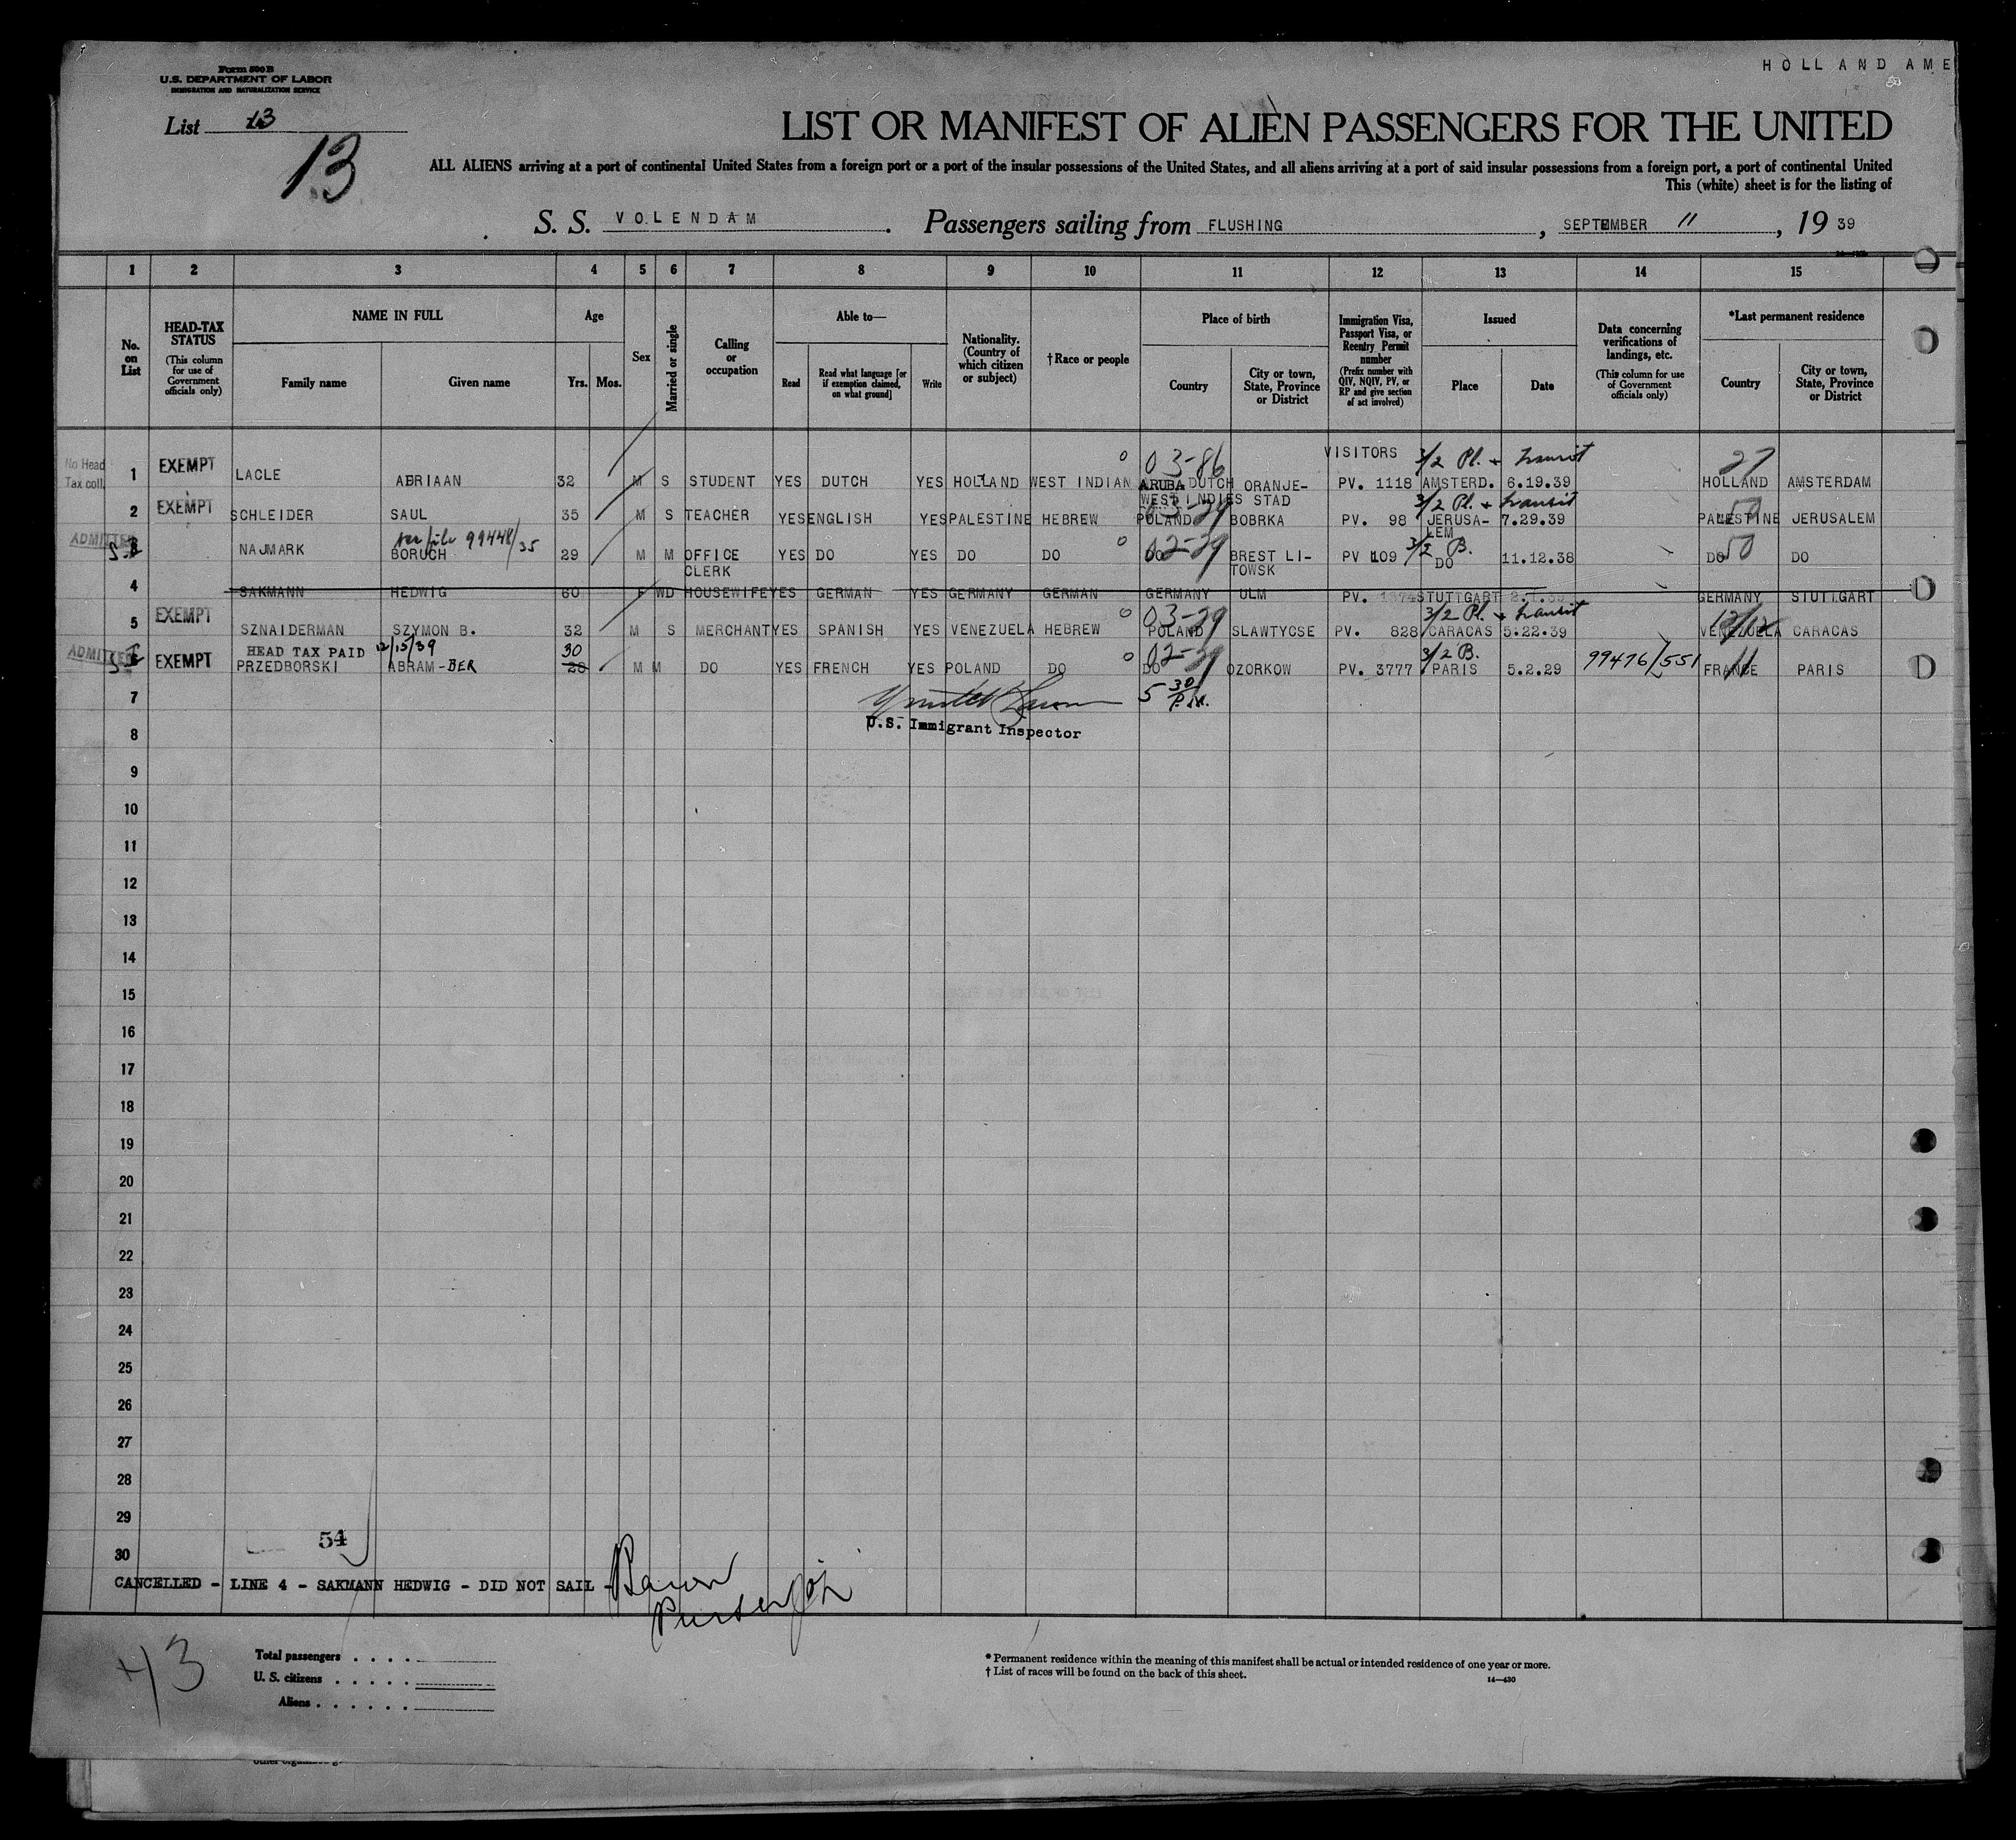 HOLLAND AME
Form 500 B
U.S. DEPARTMENT OF LABOR
IMMIGRATION AND NATURALIZATION SERVICE
List 13
13
LIST OR MANIFEST OF ALIEN PASSENGERS FOR THE UNITED
ALL ALIENS arriving at a port of continental United States from a foreign port or a port of the insular possessions of the United States, and all aliens arriving at a port of said insular possessions from a foreign port, a port of continental United
This (white) sheet is for the listing of
S. S. VOLENDAM. Passengers sailing from FLUSHING, SEPTEMBER 11, 19 39
1 2 3 4 5 6 7 8 9 10 11 12 13 14 15
No. on List
HEAD-TAX STATUS
(This column for use of Government officials only)
NAME IN FULL
Family name Given name
Age
Yrs. Mos.
Sex
Married or single
Calling or occupation
Able to—
Read
Read what language [or if exemption claimed, on what ground]
Write
Nationality. (Country of which citizen or subject)
†Race or people
Place of birth
Country
City or town, State, Province or District
Immigration Visa, Passport Visa, or Reentry Permit number
(Prefix number with QIV, NQIV, PV, or RP and give section of act involved)
Issued
Place Date
Data concerning verifications of landings, etc.
(This column for use of Government officials only)
*Last permanent residence
Country
City or town, State, Province or District
VISITORS 3/2 Pl. + transit
No Head Tax coll. 1 EXEMPT LACLE ABRIAAN 32 M S STUDENT YES DUTCH YES HOLLAND WEST INDIAN 03-86 ARUBA DUTCH WEST INDIES ORANJE-STAD PV. 1118 AMSTERD. 6.19.39 27 HOLLAND AMSTERDAM
3/2 Pl. + transit
2 EXEMPT SCHLEIDER SAUL 35 M S TEACHER YES ENGLISH YES PALESTINE HEBREW 03-29 POLAND BOBRKA PV. 98 JERUSA-LEM 7.29.39 50 PALESTINE JERUSALEM
see file 99448/35
ADMITTED 3 NAJMARK BORUCH 29 M M OFFICE CLERK YES DO YES DO DO 02-29 DO BREST LI-TOWSK PV 109 3/2 B. DO 11.12.38 50 DO DO
4 SAKMANN HEDWIG 60 F WD HOUSEWIFE YES GERMAN YES GERMANY GERMAN GERMANY ULM PV. STUTTGART GERMANY STUTTGART
3/2 Pl. + transit
5 EXEMPT SZNAIDERMAN SZYMON B. 32 M S MERCHANT YES SPANISH YES VENEZUELA HEBREW 03-29 POLAND SLAWTYCSE PV. 828 CARACAS 5.22.39 VENEZUELA CARACAS
HEAD TAX PAID 12/15/39 30 3/2 B.
ADMITTED EXEMPT PRZEDBORSKI ABRAM-BER 28 M M DO YES FRENCH YES POLAND DO 02-29 DO OZORKOW PV. 3777 PARIS 5.2.29 99476/551 FRANCE 11 PARIS
7 5 30 P.M.
U.S. Immigrant Inspector
8
9
10
11
12
13
14
15
16
17
18
19
20
21
22
23
24
25
26
27
28
29
54
30
CANCELLED - LINE 4 - SAKMANN HEDWIG - DID NOT SAIL -
Purser
43
Total passengers . . . .
U. S. citizens . . . . .
Aliens . . . . . .
* Permanent residence within the meaning of this manifest shall be actual or intended residence of one year or more.
† List of races will be found on the back of this sheet.
14—430